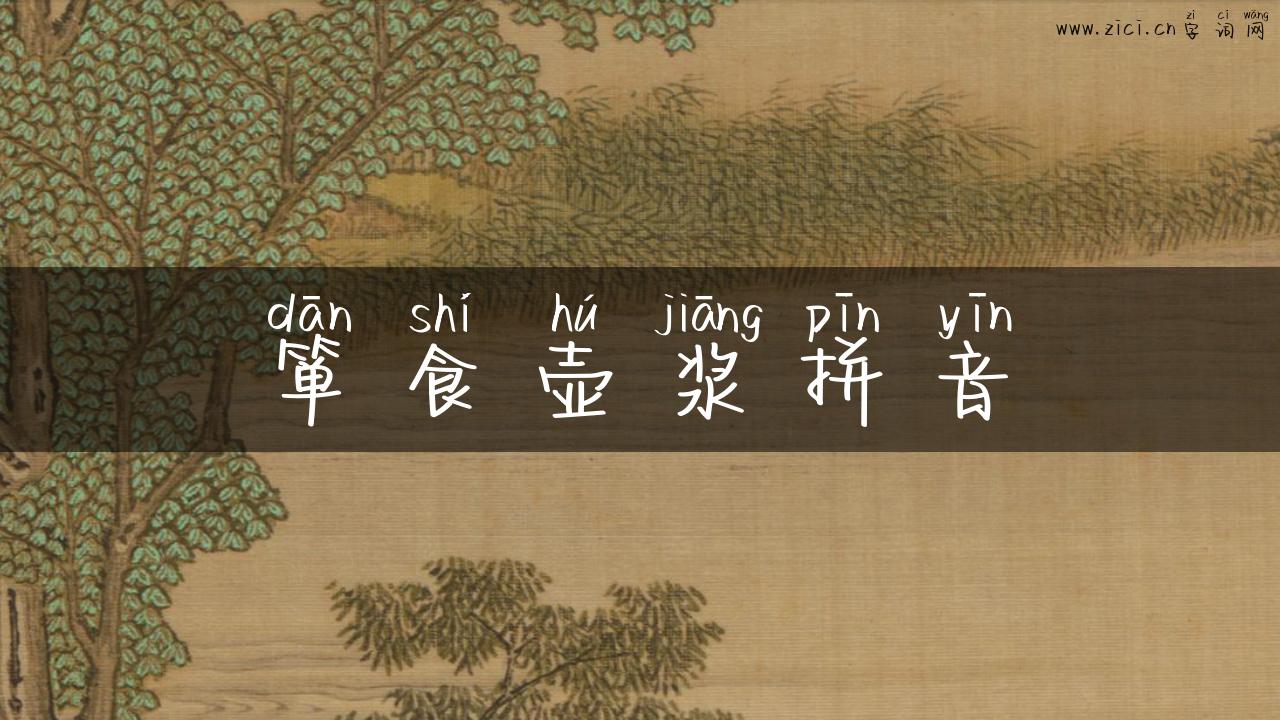 zì cí wǎng
www.zici.cn字词网
dān shí hú jiāng pīn yīn
箪食壶浆拼音